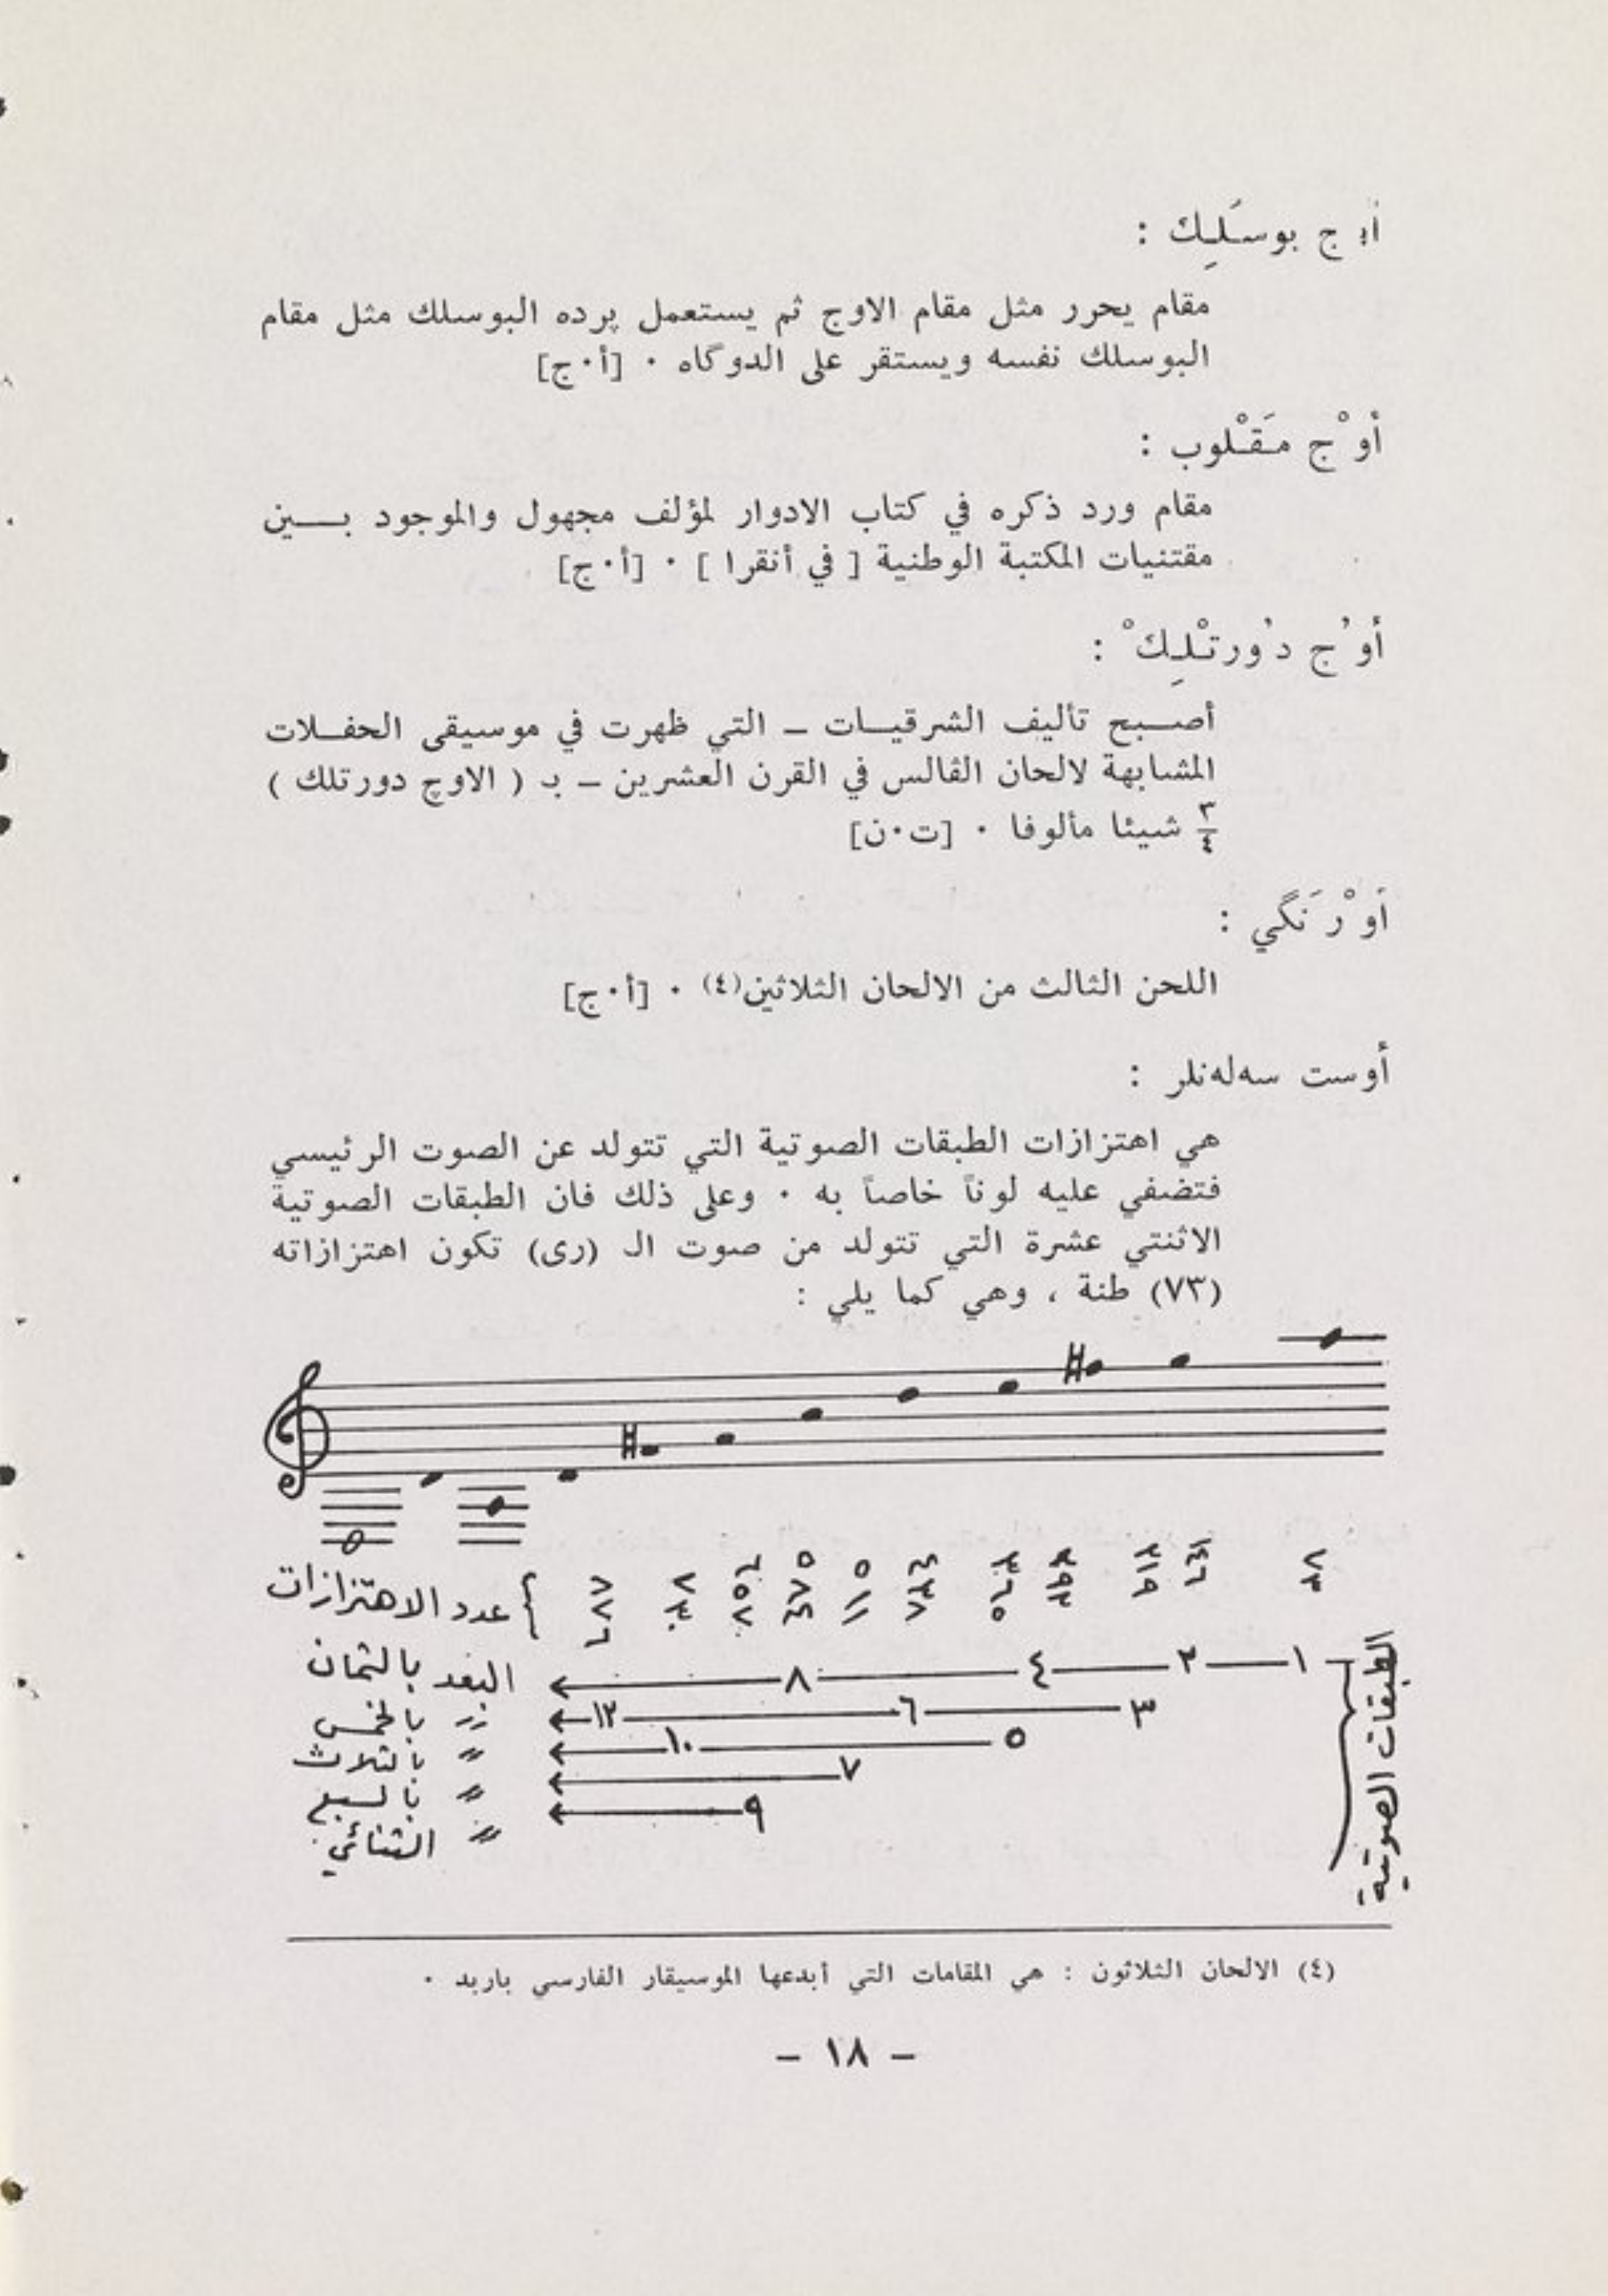 أوج بوسَلِك :
مقام يحرر مثل مقام الاوج ثم يستعمل پرده البوسلك مثل مقام
البوسلك نفسه ويستقر على الدوگاه ٠ [أ٠ج]
أوْج مَقْلوب :
مقام ورد ذكره في كتاب الادوار لمؤلف مجهول والموجود بــين
مقتنيات المكتبة الوطنية [ في أنقرا ] ٠ [أ٠ج]
أوُج دُورتْلِكْ :
أصــبح تأليف الشرقيــات ــ التي ظهرت في موسيقى الحفــلات
المشابهة لالحان الڤالس في القرن العشرين ــ بـ ( الاوچ دورتلك )
٣/٤ شيئا مألوفا ٠ [ت٠ن]
أوْرَنگي :
اللحن الثالث من الالحان الثلاثين(٤) ٠ [أ٠ج]
أوست سەلەنلر :
هي اهتزازات الطبقات الصوتية التي تتولد عن الصوت الرئيسي
فتضفي عليه لوناً خاصاً به ٠ وعلى ذلك فان الطبقات الصوتية
الاثنتي عشرة التي تتولد من صوت الـ (رى) تكون اهتزازاته
(٧٣) طنة ، وهي كما يلي :
عدد الاهتزازات
البعد بالثمان ٨ ٤ ٢ ١
〃 بالخمس ١٢ ٦ ٣
〃 بالثلاث ١٠ ٥
〃 بالسبع ٧
〃 الثنائي ٩
الطبقات الصوتية
(٤) الالحان الثلاثون : هي المقامات التي أبدعها الموسيقار الفارسي باربد ٠
– ١٨ –